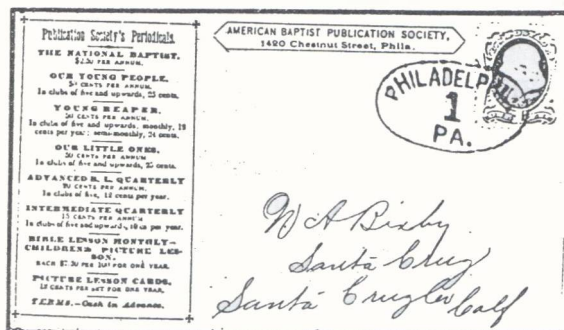 Publication Society's Periodicals.
THE NATIONAL BAPTIST.
PER ANNUM.
OUR YOUNG PEOPLE.
CENTS PER ANNUM.
In clubs of five and upwards, 25 cents.
YOUNG REAPER.
CENTS PER ANNUM.
In clubs of five and upwards, monthly,
cents per year; semi-monthly, 24 cents.
OUR LITTLE ONES.
50 CENTS PER ANNUM
In clubs of five and upwards, 25 cents.
ADVANCED B. L. QUARTERLY
CENTS PER ANNUM.
In clubs of five, cents per year.
INTERMEDIATE QUARTERLY
CENTS PER ANNUM
In clubs of five and upwards, cts per year.
BIBLE LESSON MONTHLY—
CHILDRENS PICTURE LES-
SON.
EACH PER FOR ONE YEAR.
PICTURE LESSON CARDS,
CENTS PER SET FOR ONE YEAR.
TERMS.—Cash in Advance.
AMERICAN BAPTIST PUBLICATION SOCIETY,
1420 Chestnut Street, Phila.
PHILADELPHIA
1
PA.
W A Bixby
Santa Cruz
Santa Cruz Co
Calf